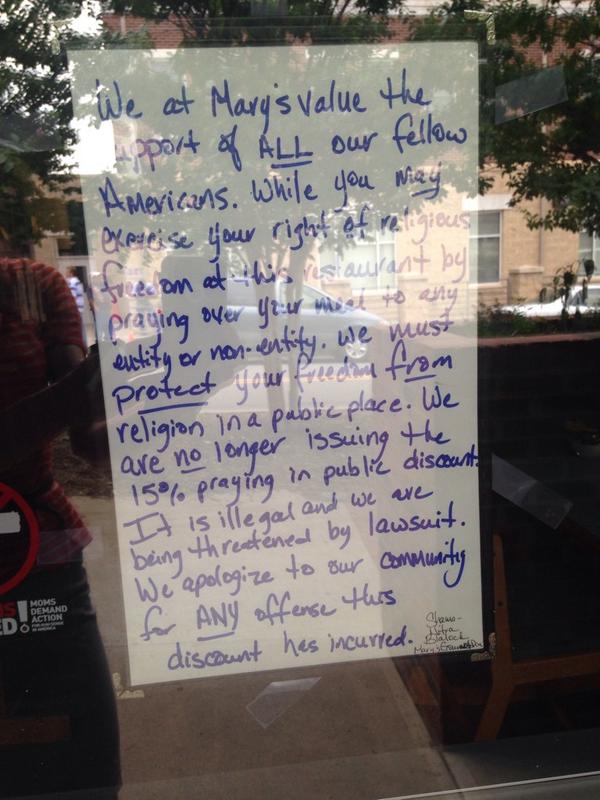 We at Mary's value the
support of ALL our fellow
Americans. While you may
exercise your right of religious
freedom at this restaurant by
praying over your meal to any
entity or non-entity. We must
protect your freedom from
religion in a public place. We
are no longer issuing the
15% praying in public discount.
It is illegal and we are
being threatened by lawsuit.
We apologize to our community
for ANY offense this
discount has incurred.
MOMS
DEMAND
ACTION
FOR GUN SENSE
IN AMERICA